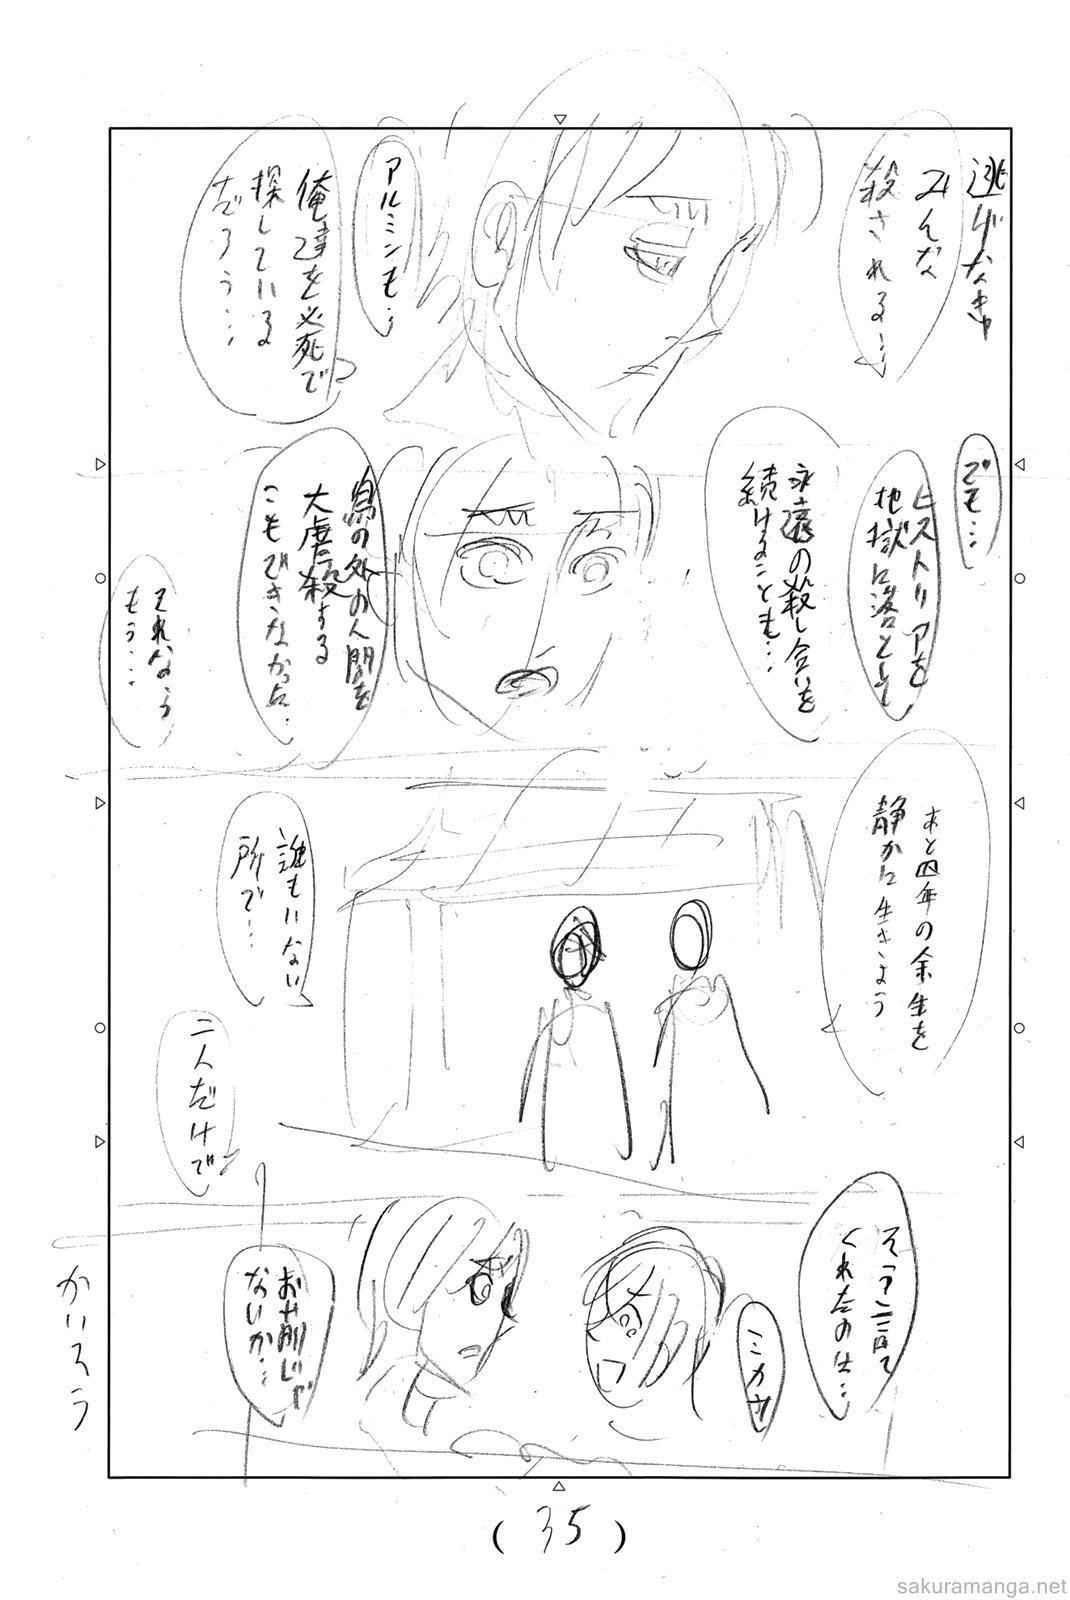 逃げなきゃ
みんな
殺される…
アルミンも…
俺達を必死で
探している
だろう…
でも…
ヒストリアを
地獄に落として
永遠の殺し合いを
続けることも…
島の外の人間を
大虐殺する
こともできなかった…
それなら
もう…
あと四年の余生を
静かに生きよう
誰もいない
所で…
二人だけで
そう言って
くれたのは…
ミカサ
お前じゃ
ないか…
(35)
sakuramanga.net